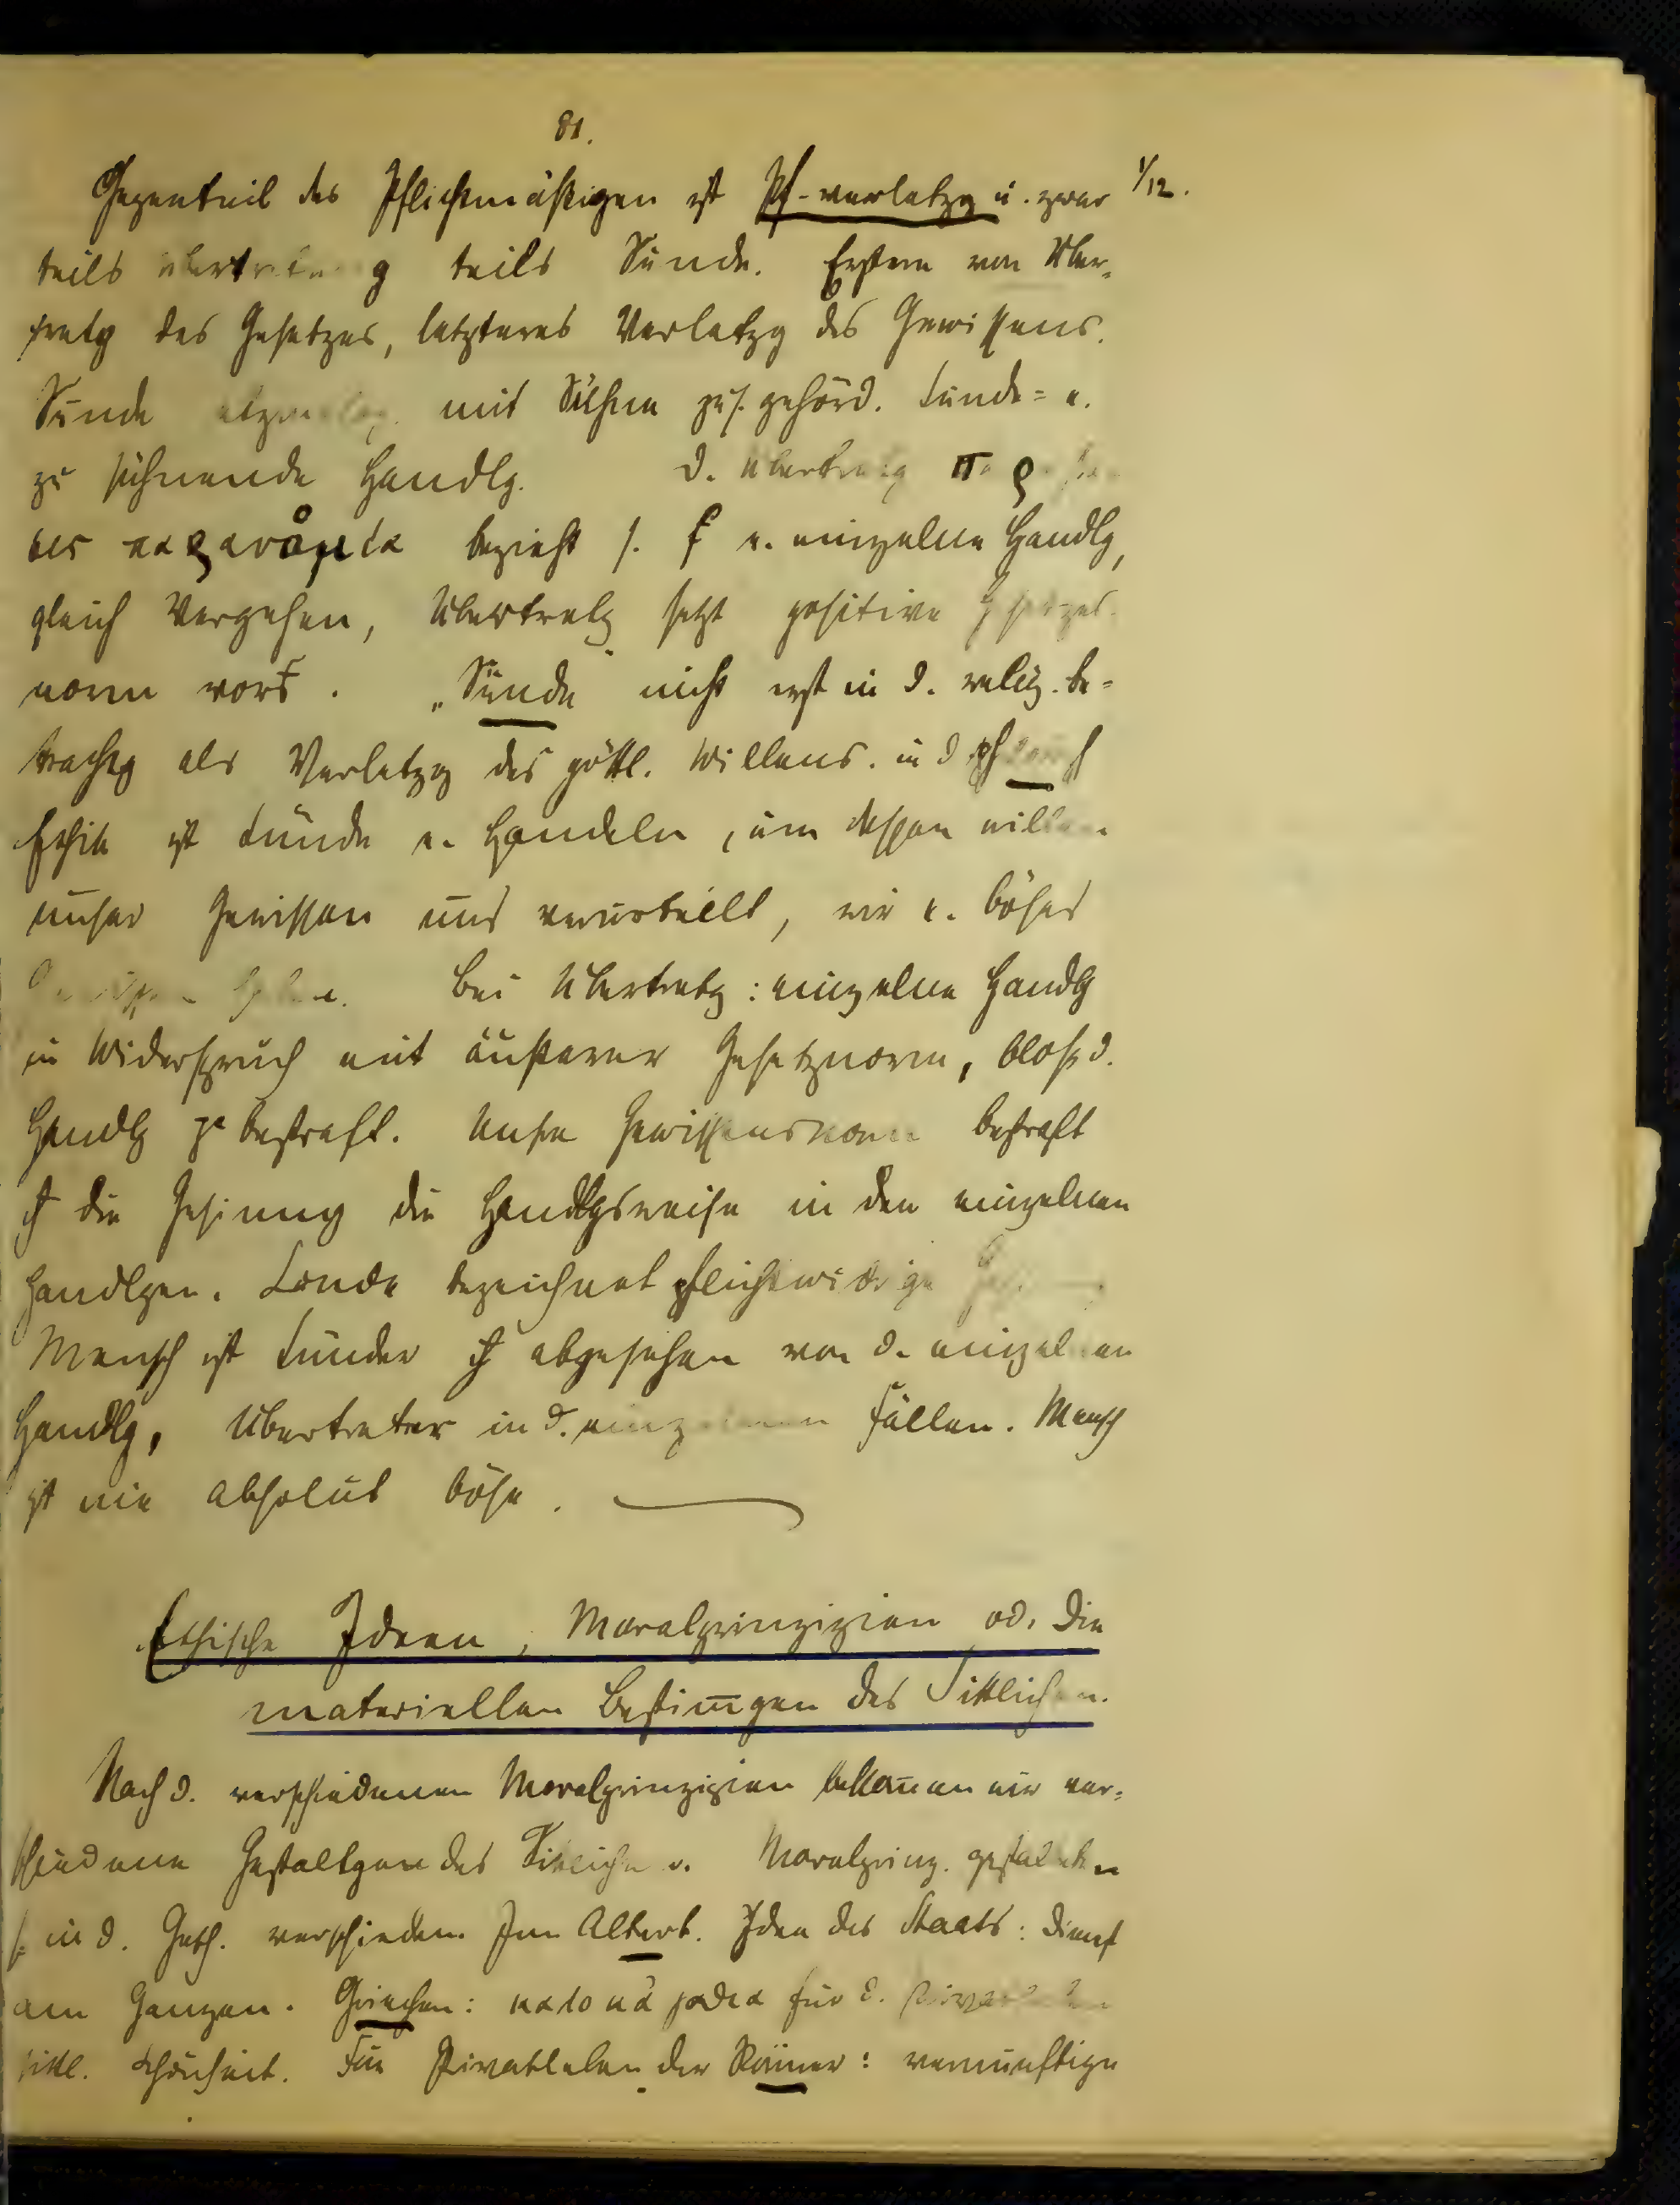 81.
Gegenteil des Pflichtmäßigen ist Pf-verletzg u. zwar 1/12.
teils teils Sünde. Erstere von Über-
tretg des Gesetzes, letzteres Verletzg des Gewissens.
Sünde mit Sühne zus. gehörd. Sünde = e.
zu sühnende Handlg. D. Übertretg
bezieht s. e. einzelne Handlg,
gleich Vergehen, Übertretg setzt positive
norm vors. „Sünde" nicht erst in d. relig. Be-
trachtg als Verletzg des göttl. Willens. in d
Ethik ist Sünde e. Handeln, um dessen willen
unser Gewissen uns verurteilt, wir e. böses
Bei Übertretg: einzelne Handlg
in Widerspruch mit äußerer Gesetznorm, bloß d.
Handlg bestraft. Unsre Gewissensnorm bestraft
die Gesinnung die Handlgsweise in den einzelnen
Handlgen. Sünde bezeichnet pflichtwidrige
Mensch ist Sünder abgesehen von d. einzelnen
Handlg, Übertreter in d. einzelnen Fällen. Mensch
ist nie absolut böse.
Ethische Ideen, Moralprinzipien od. die
materiellen Bestimgen des Sittlichen.
Nach d. verschiedenen Moralprinzipien bekomen wir ver-
schiedene Gestaltgen des Sittlichen. Moralprinz. gestalten
s. in d. Gesch. verschieden. Im Altert. Idee des Staats: Dienst
am Ganzen. Griechen: für d.
sittl. Schönheit. Für Privatleben der Römer: vernünftige